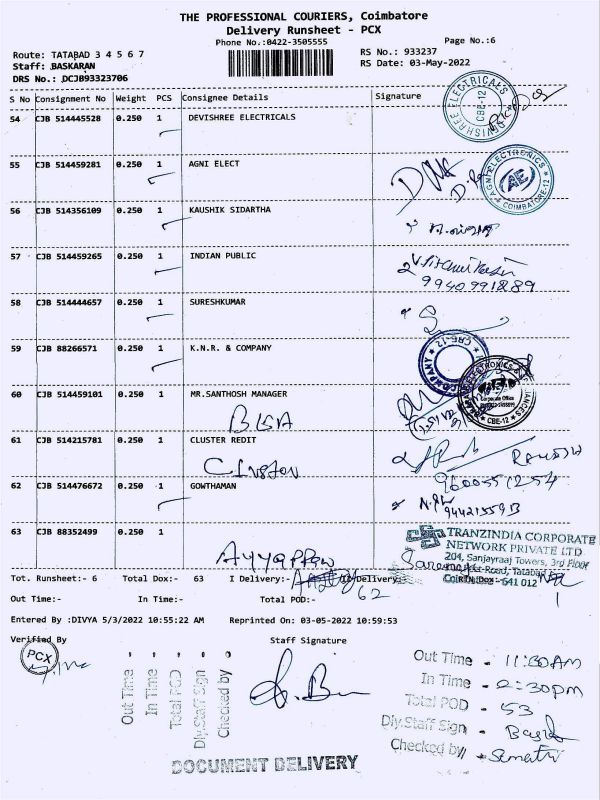 THE PROFESSIONAL COURIERS, Coimbatore
Delivery Runsheet - PCX
Phone No.:0422-3505555
Page No.:6
Route: TATABAD 3 4 5 6 7
RS No.: 933237
Staff: BASKARAN
RS Date: 03-May-2022
DRS No.: DCJB93323706
S No Consignment No Weight PCS Consignee Details Signature
54 CJB 514445528 0.250 1 DEVISHREE ELECTRICALS
CBE-12
55 CJB 514459281 0.250 1 AGNI ELECT
AGNI ELECTRONICS
AE
COIMBATORE-12
56 CJB 514356109 0.250 1 KAUSHIK SIDARTHA
57 CJB 514459265 0.250 1 INDIAN PUBLIC
9940991889
58 CJB 514444657 0.250 1 SURESHKUMAR
59 CJB 88266571 0.250 1 K.N.R. & COMPANY
COMPANY * CBE-12 *
60 CJB 514459101 0.250 1 MR.SANTHOSH MANAGER
Corporate Office
* CBE-12 *
61 CJB 514215781 0.250 1 CLUSTER REDIT
9600551254
62 CJB 514476672 0.250 1 GOWTHAMAN
63 CJB 88352499 0.250 1
Ayyappan
TRANZINDIA CORPORATE
NETWORK PRIVATE LTD
204, Sanjayraaj Towers, 3rd Floor
Road, Tatabad
641 012
Tot. Runsheet:- 6 Total Dox:- 63 I Delivery:- II Delivery:-
Out Time:- In Time:- Total POD:- 62 1
Entered By :DIVYA 5/3/2022 10:55:22 AM Reprinted On: 03-05-2022 10:59:53
Verified By Staff Signature
PCX
Out Time
In Time
Total POD
Dly.Staff Sign
Checked by
Out Time - 11:30AM
In Time - 2:30pm
Total POD - 53
Dly.Staff Sign -
Checked by -
DOCUMENT DELIVERY